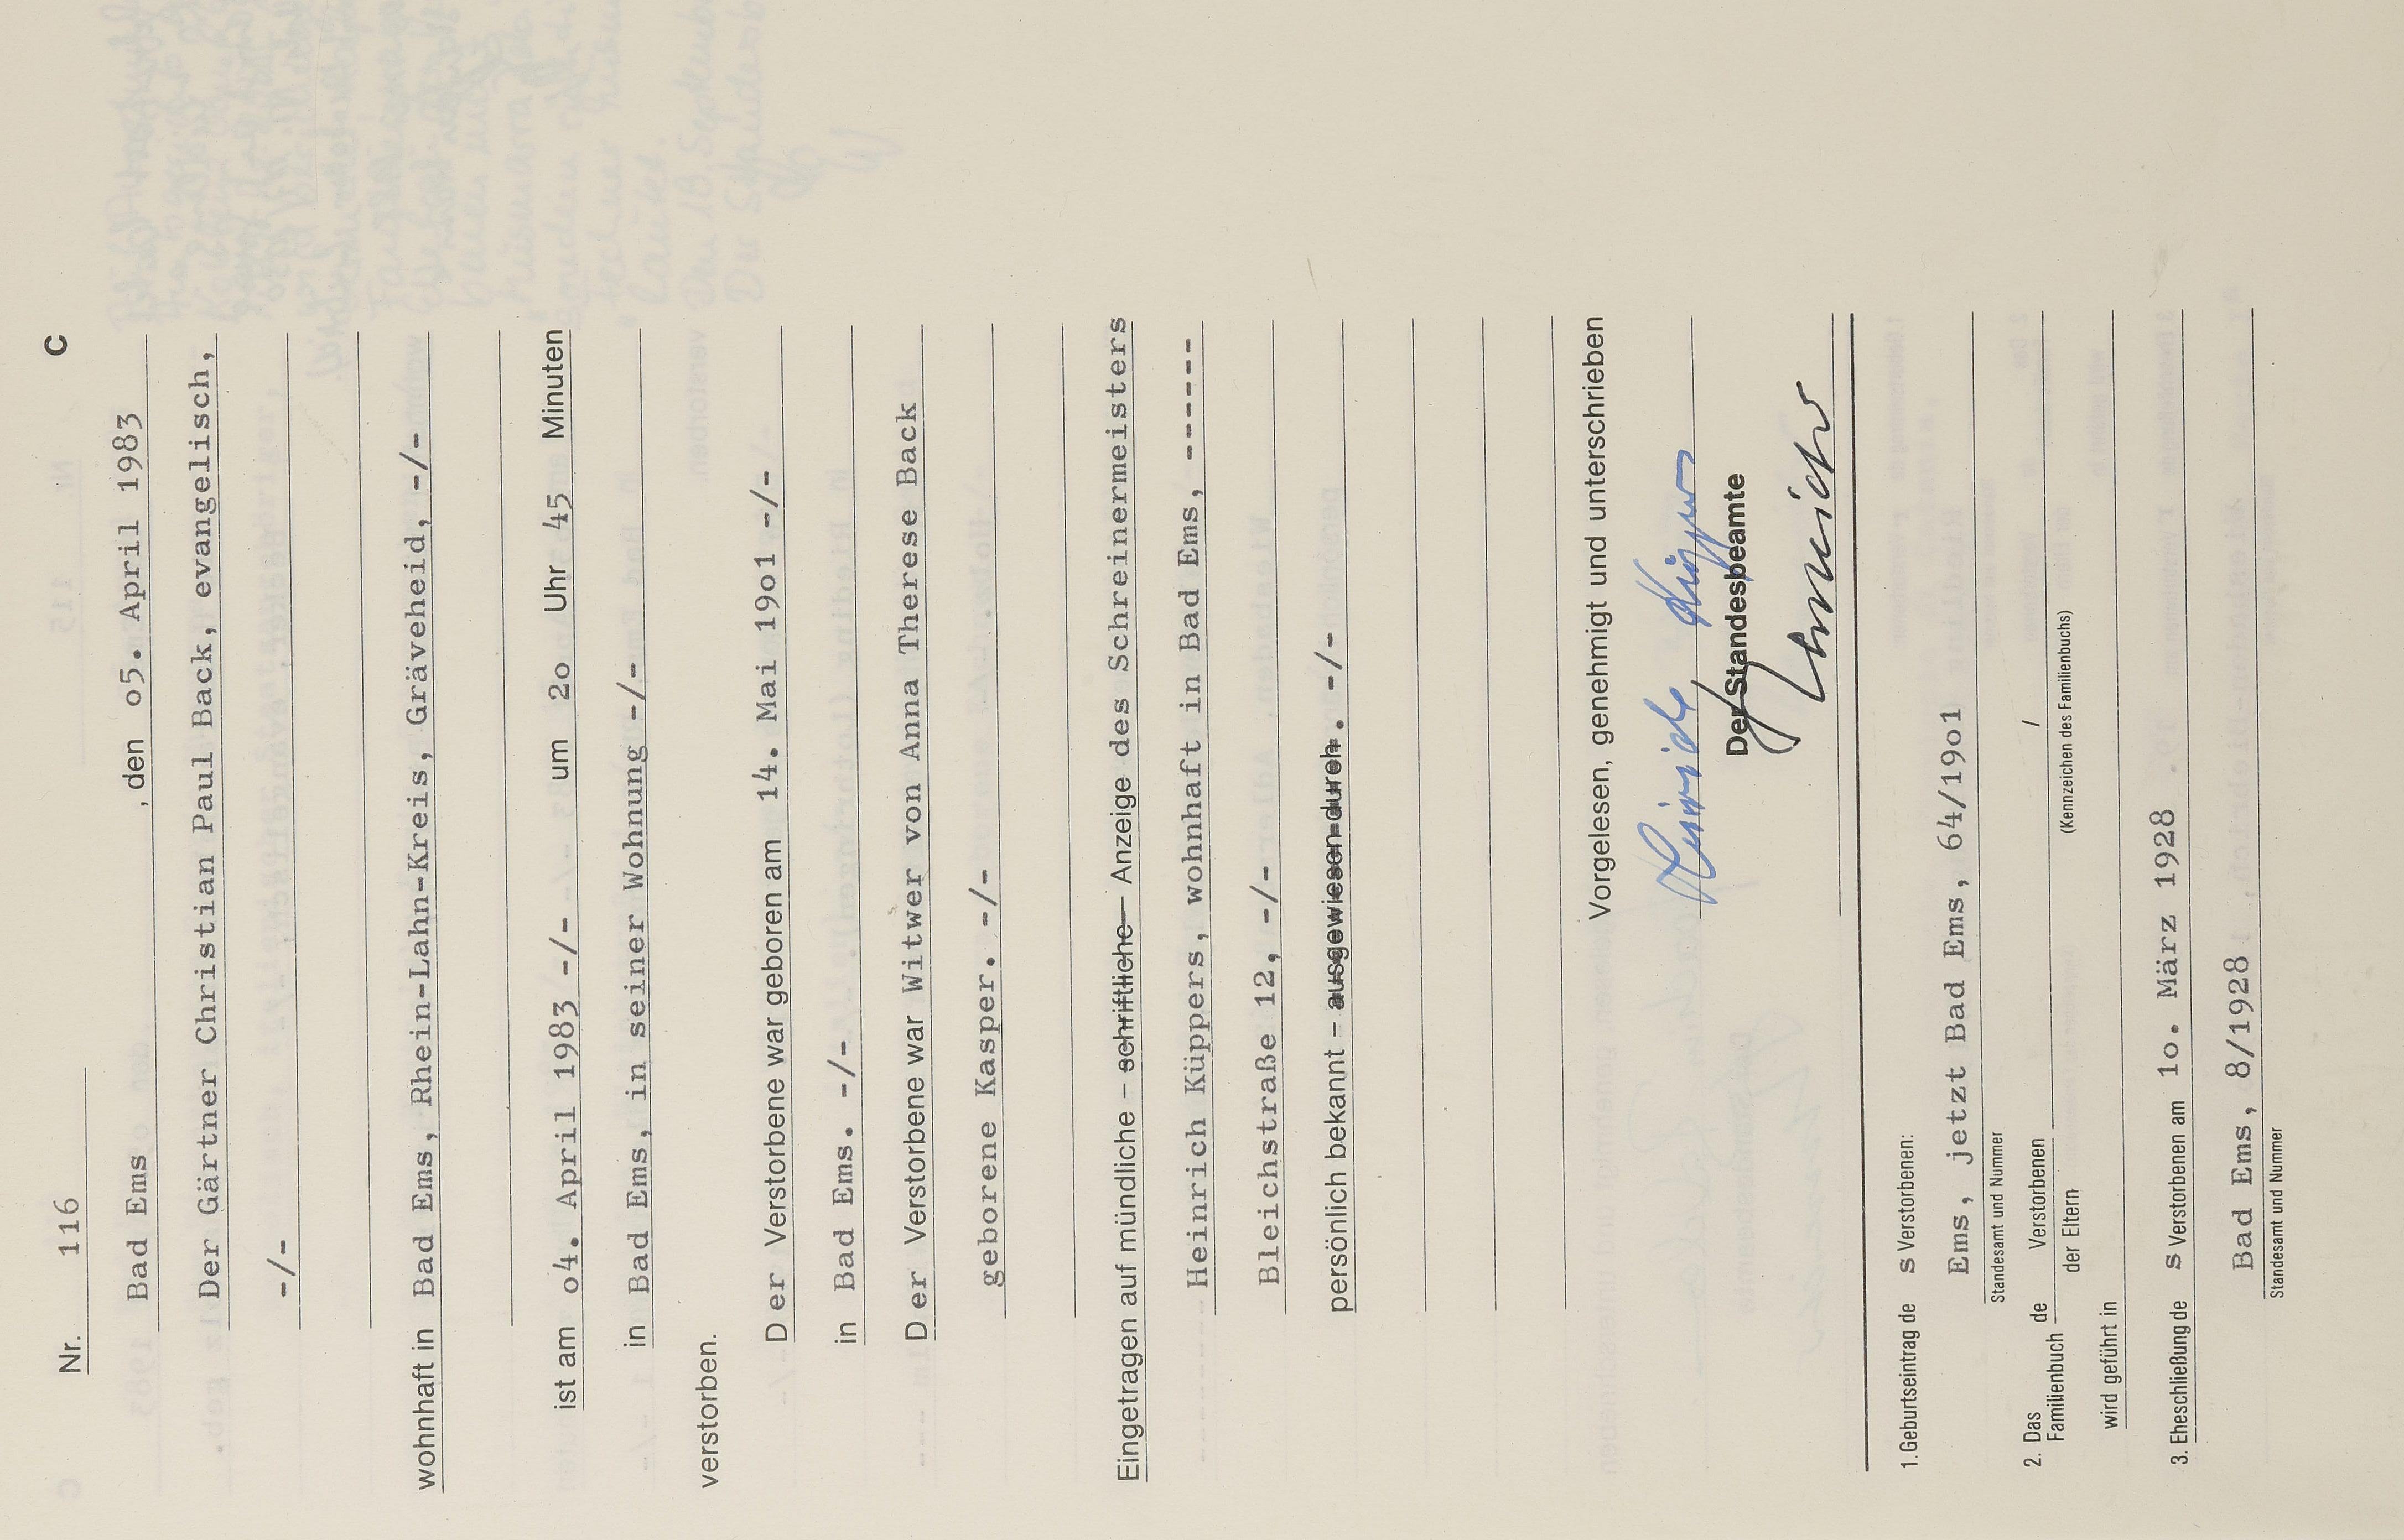 Nr. 116 C
Bad Ems , den o5. April 1983
Der Gärtner Christian Paul Back, evangelisch,
-/-
wohnhaft in Bad Ems, Rhein-Lahn-Kreis, Gräveheid, -/-
ist am o4. April 1983 -/- um 2o Uhr 45 Minuten
in Bad Ems, in seiner Wohnung -/-
verstorben.
D er Verstorbene war geboren am 14. Mai 19o1 -/-
in Bad Ems. -/-
D er Verstorbene war Witwer von Anna Therese Back
geborene Kasper. -/-
Eingetragen auf mündliche – schriftliche – Anzeige des Schreinermeisters
Heinrich Küppers, wohnhaft in Bad Ems, ------
Bleichstraße 12, -/-
persönlich bekannt – ausgewiesen durch . -/-
Vorgelesen, genehmigt und unterschrieben
Heinrich Küppers
Der Standesbeamte
1. Geburtseintrag de s Verstorbenen:
Ems, jetzt Bad Ems, 64/19o1
Standesamt und Nummer
2. Das Familienbuch de Verstorbenen /
der Eltern (Kennzeichen des Familienbuchs)
wird geführt in
3. Eheschließung de s Verstorbenen am 1o. März 1928
Bad Ems, 8/1928
Standesamt und Nummer